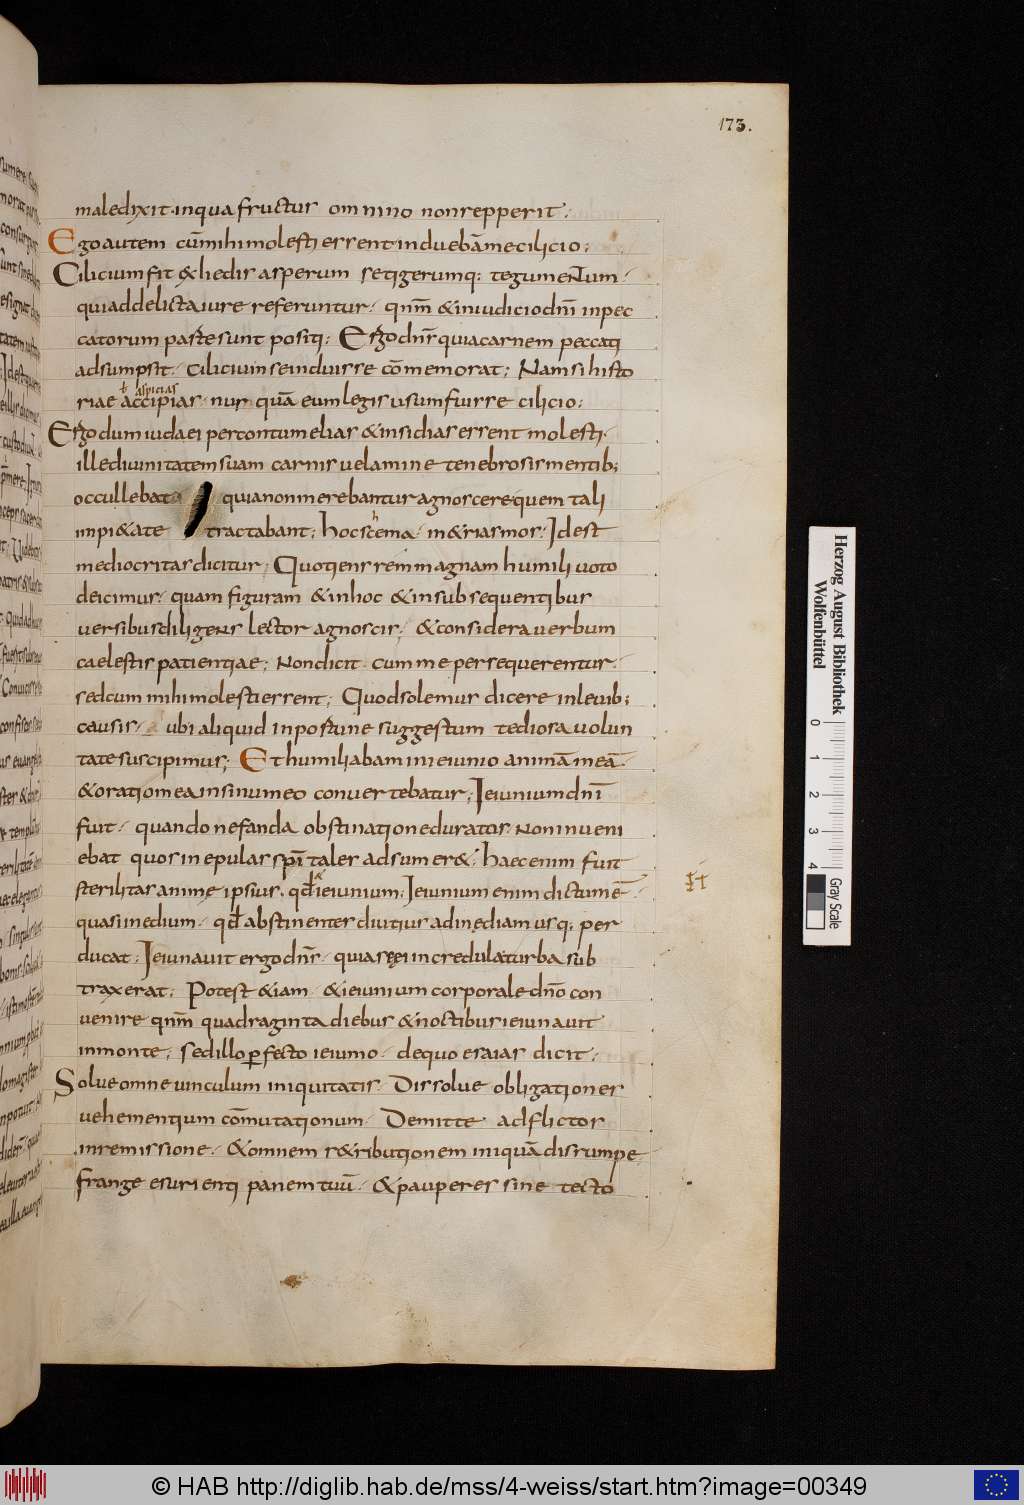 173.
maledixit · in qua fructus omnino non repperit ;
Ego autem cū mihi molesti essent induebāme cilicio ;
Cilicium fit & hedis asperum setigerumq; tegumentum ·
quia ad delicta iure referuntur · qnm̄ & in iudicio dn̄i in pec
catorum parte sunt positi ; Ergo dn̄s quia carnem peccati
adsumpsit · cilicium se induisse cōmemorat ; Nam si histo
aspicias
riae accipias · nusquā eum legis usum fuisse cilicio ;
Ergo dum iudaei per contumelias & insidias essent molesti ·
ille diuinitatem suam carnis uelamine tenebrosis mentib;
occullebat quia non merebantur agnoscere quem tali
impi&ate tractabant ; hoc scema · m&riasmos · Id est
mediocritas dicitur ; Quotiens rem magnam humili uoto
deicimus · quam figuram & in hoc & in subsequentibus
uersibus diligens lector agnoscis ; & considera uerbum
caelestis patientiae ; Non dicit cum me persequerentur ·
sed cum mihi molesti essent ; Quod solemus dicere in leuib;
causis · ubi aliquid inportune suggestum tediosa uolun
tate suscipimus ; Et humiliabam in ieiunio animā meā ·
& oratio mea in sinu meo conuertebatur ; Ieiunium dn̄i
fuit · quando nefanda obstinatione duratos · Non inueni
ebat quos in epulas spi̅tales adsumer& ; haec enim fuit
sterilitas animę ipsius · qđ ieiunium ; Ieiunium enim dictum ē ·
quasi inedium · qđ abstinentes diutius ad inędiam usq; per
ducat ; Ieiunauit ergo dn̄s · quia se ei incredula turba sub
traxerat ; Potest & iam & ieiunium corporale dn̄o con
uenire qnm̄ quadraginta diebus & noctibus ieiunauit
in monte ; sed illo perfecto ieiunio · de quo esaias dicit ;
Solue omne uinculum iniquitatis · Dissolue obligationes
uehementium cōmutationum · Demitte adflictos
in remissione · & omnem r&ributionem iniquā disrumpe
frange esurienti panem tuū · & pauperes sine tecto
Herzog August Bibliothek
Wolfenbüttel
0 1 2 3 4
Gray Scale
© HAB http://diglib.hab.de/mss/4-weiss/start.htm?image=00349